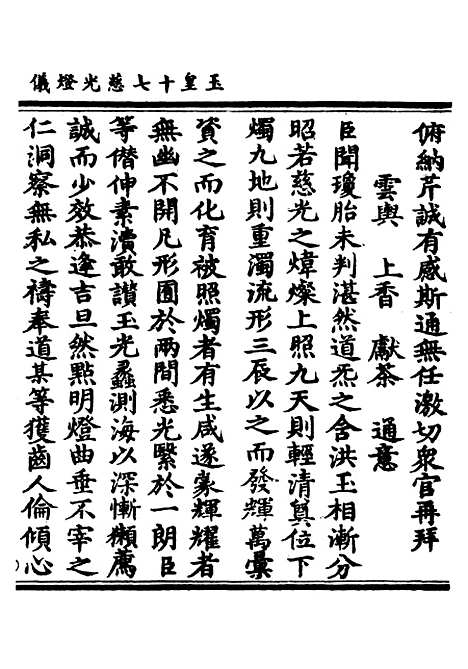 玉皇十七慈光燈儀
俯納芹誠有感斯通無任激切衆官再拜
雲輿　上香　獻茶　通意
臣聞瓊胎未判湛然道炁之含洪玉相漸分
昭若慈光之煒燦上照九天則輕清奠位下
燭九地則重濁流形三辰以之而發輝萬彙
資之而化育被照燭者有生咸遂蒙輝耀者
無幽不開凡形囿於兩間悉光緊於一朗臣
等僣伸素瀆敢讃玉光蠡測海以深慚獺薦
誠而少效恭逢吉旦然點明燈曲垂不宰之
仁洞察無私之禱奉道某等獲齒人倫傾心